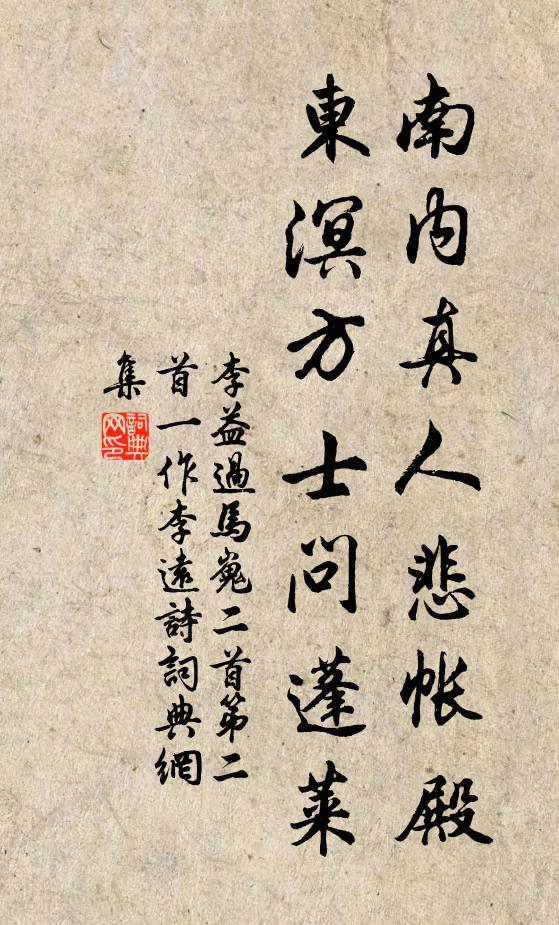 南内真人悲帐殿
東溟方士問蓬萊
李益過馬嵬二首第二
首一作李遠詩詞典網
集
詞典网印